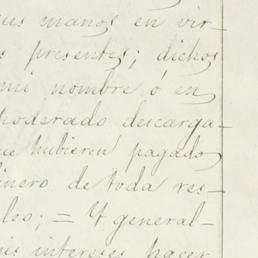 ues manos en vir-
s presentes; dichos
mi nombre ó en
poderado descarga-
ue hubieren pagado
inero de toda res-
les; = Y general-
is intereses hacer